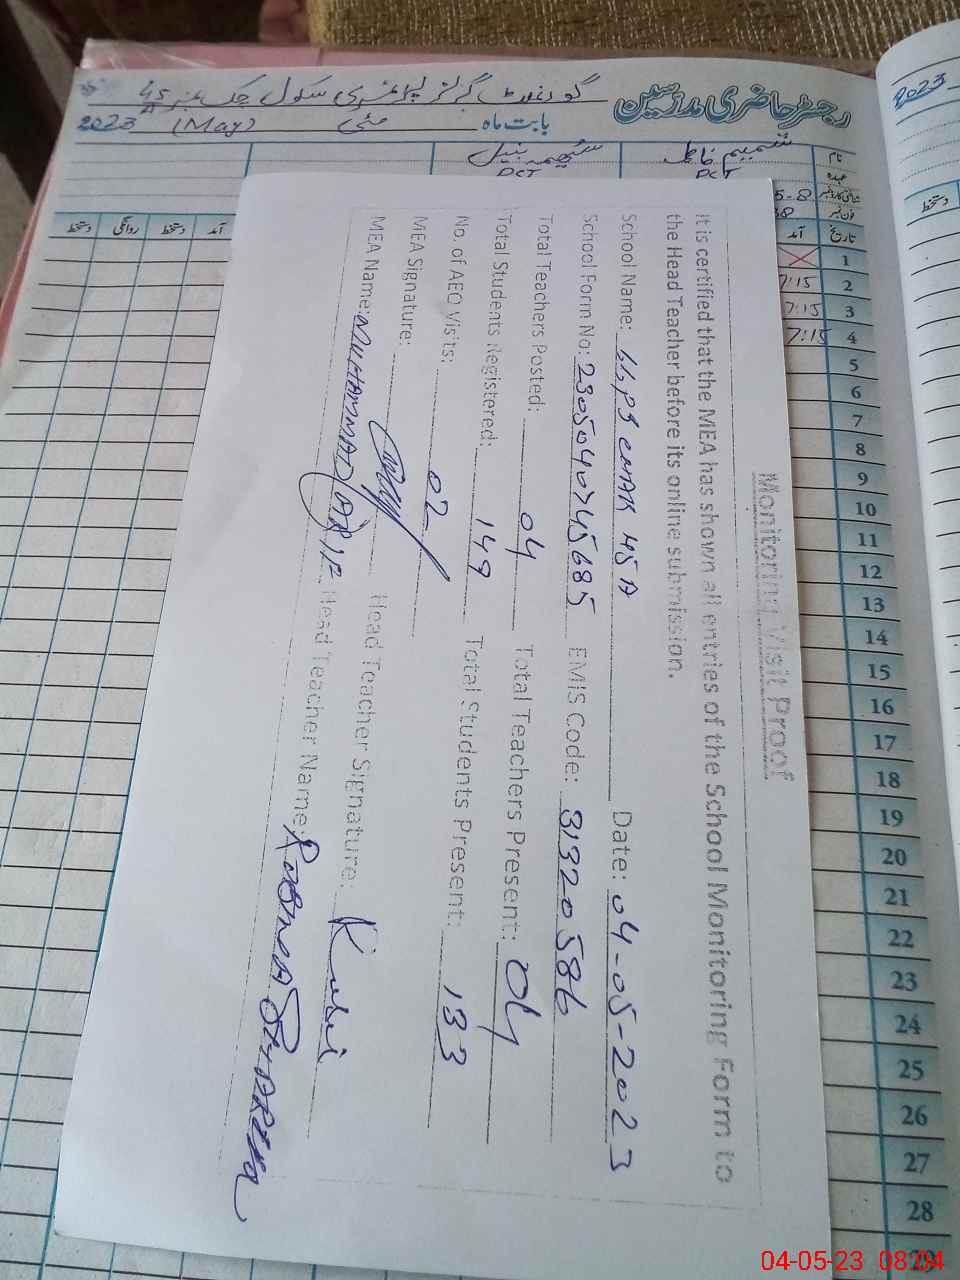 رجسٹر حاضری مدرسین
گورنمنٹ گرلز پرائمری سکول چک نمبر 45
بابت ماہ مئی (May) 2023
2023
نام
شمیم
عہدہ
PCT
PCT
شناختی کارڈ نمبر
5-8
فون نمبر
38
تاریخ
آمد
آمد
دستخط
روانگی
دستخط
دستخط
1
2 7:15
3 7:15
4 7:15
5
6
7
8
9
10
11
12
13
14
15
16
17
18
19
20
21
22
23
24
25
26
27
28
29
Monitoring Visit Proof
It is certified that the MEA has shown all entries of the School Monitoring Form to
the Head Teacher before its online submission.
School Name: GGPS CHAK 45 A Date: 04-05-2023
School Form No: 2305040745685 EMIS Code: 31320586
Total Teachers Posted: 04 Total Teachers Present: 04
Total Students Registered: 149 Total Students Present: 133
No. of AEO Visits: 02
MEA Signature: Head Teacher Signature:
MEA Name: MUHAMMAD Head Teacher Name: Robina
04-05-23 08:04